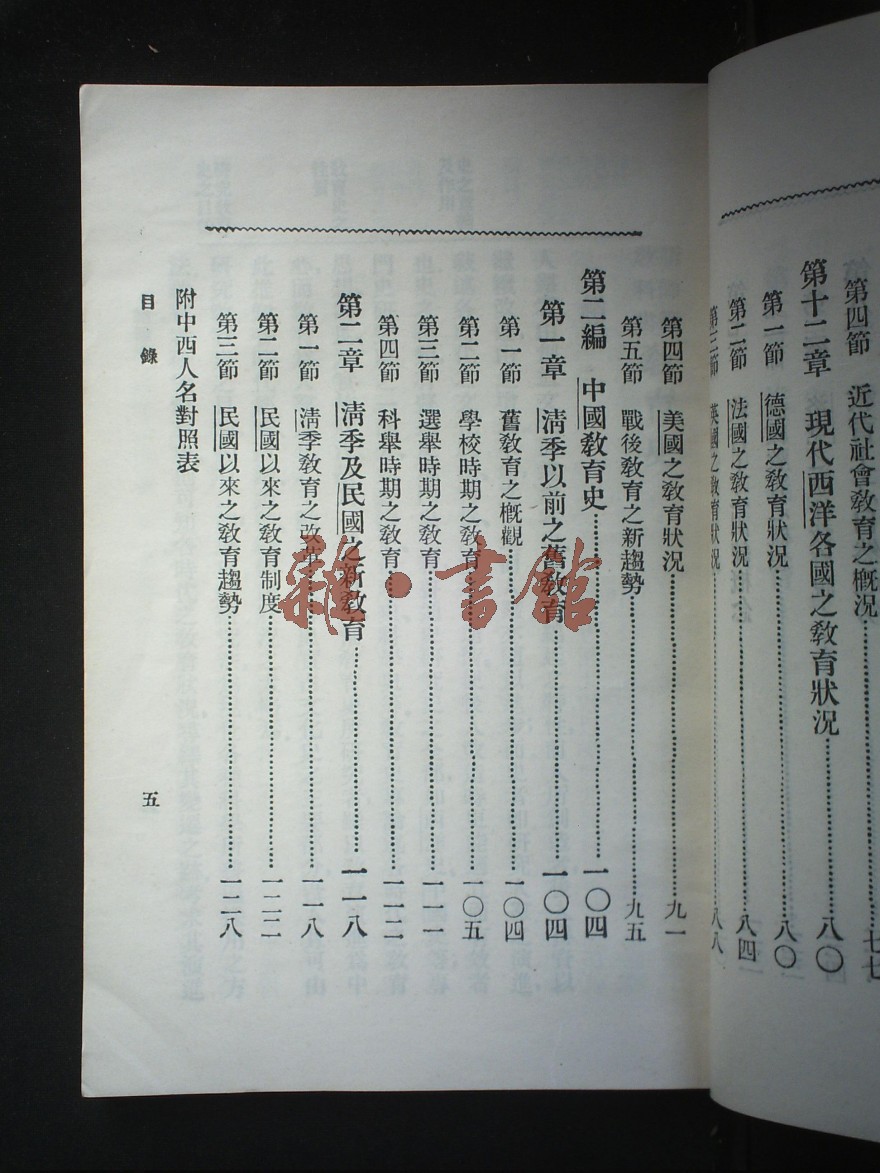 第四節 近代社會教育之概況 七七
第十二章 現代西洋各國之教育狀況 八〇
第一節 德國之教育狀況 八〇
第二節 法國之教育狀況 八四
第三節 英國之教育狀況 八八
第四節 美國之教育狀況 九一
第五節 戰後教育之新趨勢 九五
第二編 中國教育史 一〇四
第一章 清季以前之舊教育 一〇四
第一節 舊教育之概觀 一〇四
第二節 學校時期之教育 一〇五
第三節 選舉時期之教育 一一一
第四節 科舉時期之教育 一一二
第二章 清季及民國之新教育 一一八
第一節 清季教育之改革 一一八
第二節 民國以來之教育制度 一二二
第三節 民國以來之教育趨勢 一二八
附中西人名對照表
目錄
五
雜·書館